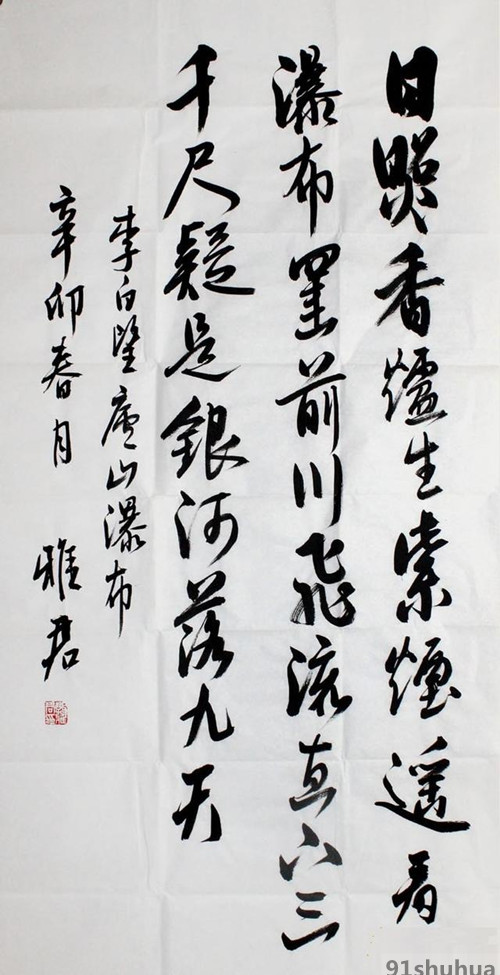 日照香爐生紫煙遙看
瀑布罣前川飛流直下三
千尺疑是銀河落九天
李白望廬山瀑布
辛卯春月 雅君
91shuhua